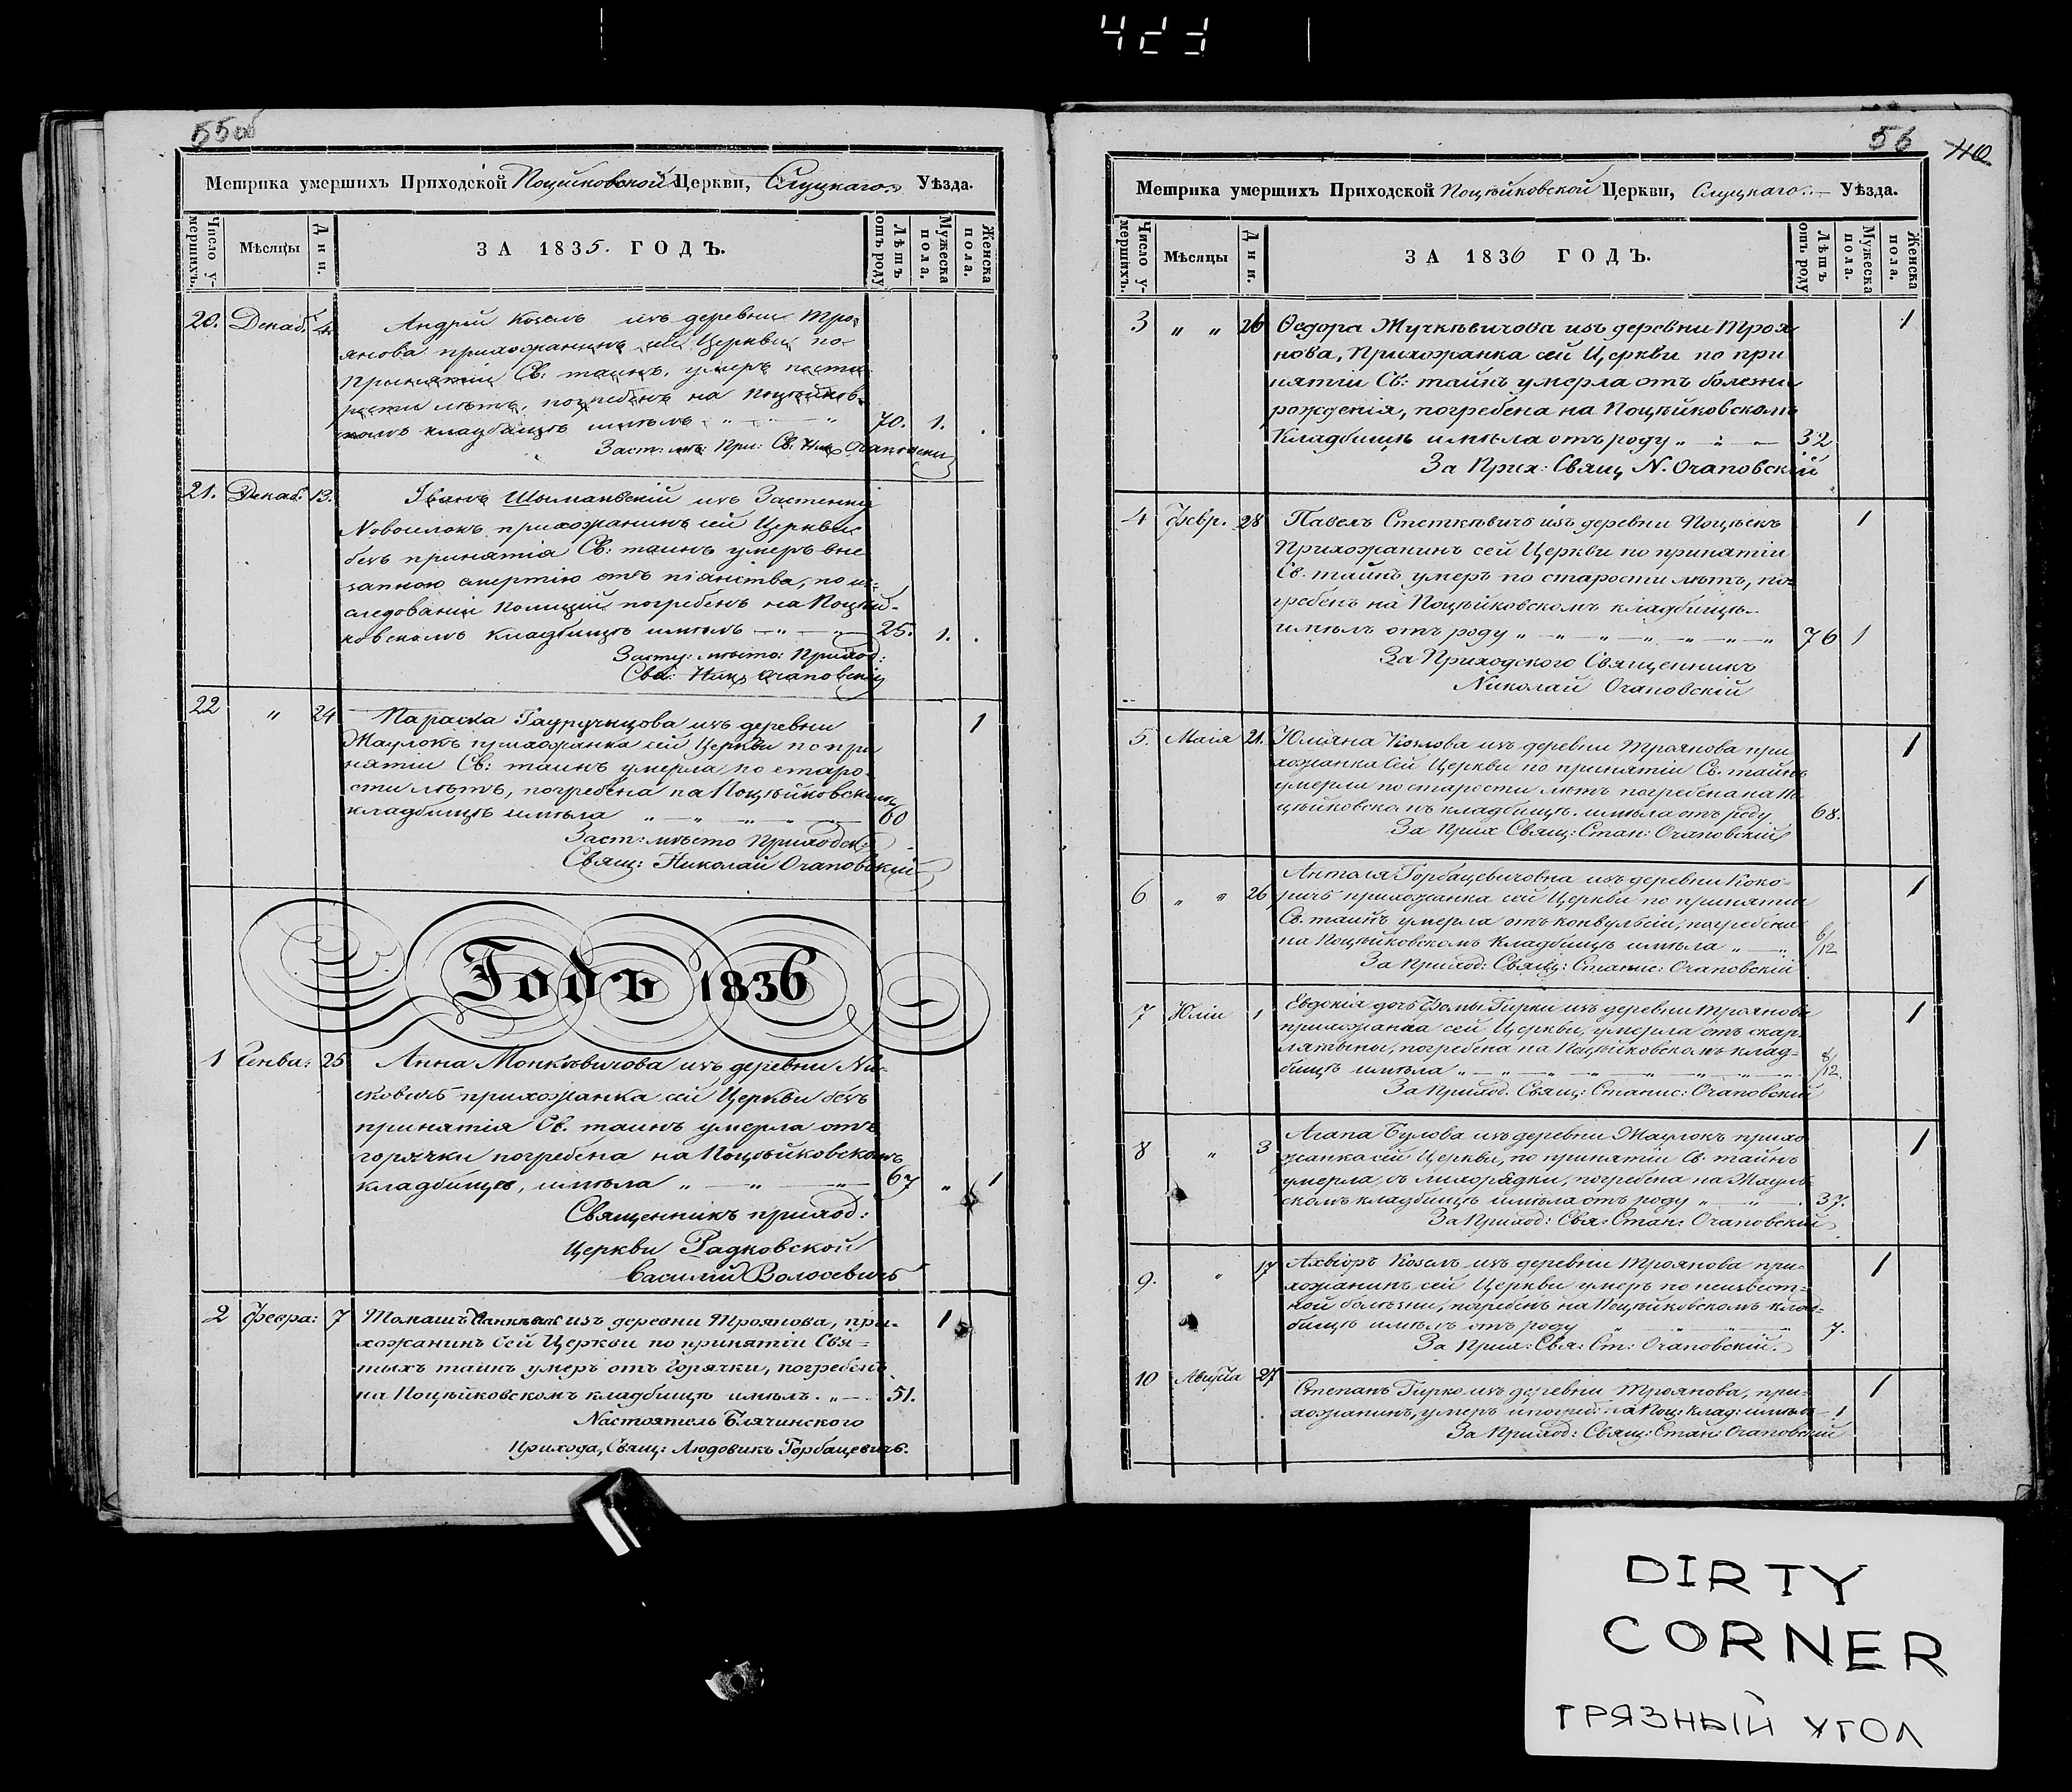 423
55об
Метрика умершихъ Приходской Поцѣйковской Церкви, Слуцкаго Уѣзда.
Число умершихъ.
Мѣсяцы
Дни.
ЗА 1835. ГОДЪ.
Лѣтъ отъ роду
Мужеска пола.
Женска пола.
20. Декаб. 4.
Андрей Козелъ изъ деревни Тро-
янова прихожанинъ сей Церкви по
принятіи Св: таинъ, умеръ по ста
рости лѣтъ, погребенъ на Поцѣйков-
скомъ кладбищѣ имѣлъ 70. 1.
Заст: мѣ: При: Св. Ник Очаповскій
21. Декаб. 13.
Іванъ Шыманскій изъ Застенку
Новоселокъ прихожанинъ сей Церкви
безъ принятія Св: таинъ умеръ вне
запною смертію отъ піянства, по из-
следованіи Полиціи погребенъ на Поцѣй-
ковскомъ кладбищѣ имѣлъ — „ — „ — 25. 1.
Засту: мѣсто: Приход:
Свя: Ник: Очаповскій
22 „ 24 1
Параска Гауручыцова изъ деревни
Жаулокъ прихожанка сей Церкви по при
нятіи Св: таинъ умерла по старо
сти лѣтъ, погребена на Поцѣйковскомъ
кладбищѣ имѣла 60
Заст: мѣсто Приходск:
Свящ: Николай Очаповскій
Годъ 1836
1 Генва: 25
Анна Монкѣвичова изъ деревни Ли-
сковичъ прихожанка сей Церкви безъ
принятія Св. таинъ умерла отъ
горячки погребена на Поцѣйковскомъ
кладбищѣ, имѣла „ — „ — 67 „ 1
Священникъ приход:
Церкви Радковской
Василій Волосевичъ
2 Февра: 7 1
Томашъ изъ деревни Троянова, при-
хожанинъ сей Церкви по принятіи Свя-
тыхъ таинъ умеръ отъ горячки, погребенъ
на Поцѣйковскомъ кладбищѣ имѣлъ. „ — 51.
Настоятель Блячинского
Прихода, Свящ: Людовикъ Горбацевичъ.
56
Метрика умершихъ Приходской Поцѣйковской Церкви, Слуцкаго Уѣзда.
Число умершихъ.
Мѣсяцы
Дни.
ЗА 1836 ГОДЪ.
Лѣтъ отъ роду
Мужеска пола.
Женска пола.
3 „ „ 26 1
Ѳедора Жучкѣвичова изъ деревни Троя
нова, Прихожанка сей Церкви по при
нятіи Св: тайнъ умерла отъ болезни
рожденія, погребена на Поцѣйковскомъ
кладбищѣ имѣла отъ роду „ — „ — 32
За Прих: Свящ N. Очаповскій
4 Февр. 28 1
Павелъ Стеткѣвичъ изъ деревни Поцѣекъ
Прихожанинъ сей Церкви по принятіи
Св. тайнъ умеръ по старости лѣтъ, по-
гребенъ на Поцѣйковскомъ кладбищѣ
имѣлъ отъ роду „ — „ — „ — „ — „ 76 1
За Приходского Священникъ
Николай Очаповскій
5. Маія 21. 1
Юліяна Козлова изъ деревни Троянова при
хожанка сей Церкви по принятіи Св. тайнъ
умерла по старости лѣтъ погребена на По
цѣйковскомъ кладбищѣ. имѣла отъ роду 68.
За Прих Свящ: Стан: Очаповскій
6 „ „ 26 1
Анталя Горбацевичовна изъ деревни Коко-
ричъ прихожанка сей Церкви по принятіи
Св. тайнъ умерла отъ конвульсіи, погребена
на Поцѣйковскомъ кладбищѣ имѣла „ — „ 6/12
За Приход: Свящ: Станис: Очаповскій
7 Юліи 1 1
Евдокія дочь Фомы Гирки изъ деревни Троянова
прихожанка сей Церкви, умерла отъ скар-
лятыны, погребена на Поцѣйковскомъ клад-
бищѣ имѣла „ — „ — „ — „ — „ 8/12.
За Приход. Свящ: Станис: Очаповскій
8 „ 3 1
Агапа Булова изъ деревни Жаулокъ прихо
жанка сей Церкви, по принятіи Св. тайнъ
умерла, съ лихорядки, погребена на Жаулъ
скомъ кладбищѣ имѣла отъ роду „ — „ — 37.
За Приход: Свя: Стан: Очаповскій
9. „ 17 1
Ахвіоръ Козелъ изъ деревни Троянова при-
хожанинъ сей Церкви умеръ по неизвѣст-
ной болѣзни, погребенъ на Поцѣйковскомъ клад-
бищѣ имѣлъ отъ роду 7.
За Прих: Свя: Ст: Очаповскій.
10 Августа 27 1
Степанъ Гирко изъ деревни Троянова, при-
хожанинъ, умеръ и погреб: на Поц: клад: имѣлъ 1
За Приход: Свящ: Стан: Очаповскій
DIRTY
CORNER
ГРЯЗНЫЙ УГОЛ